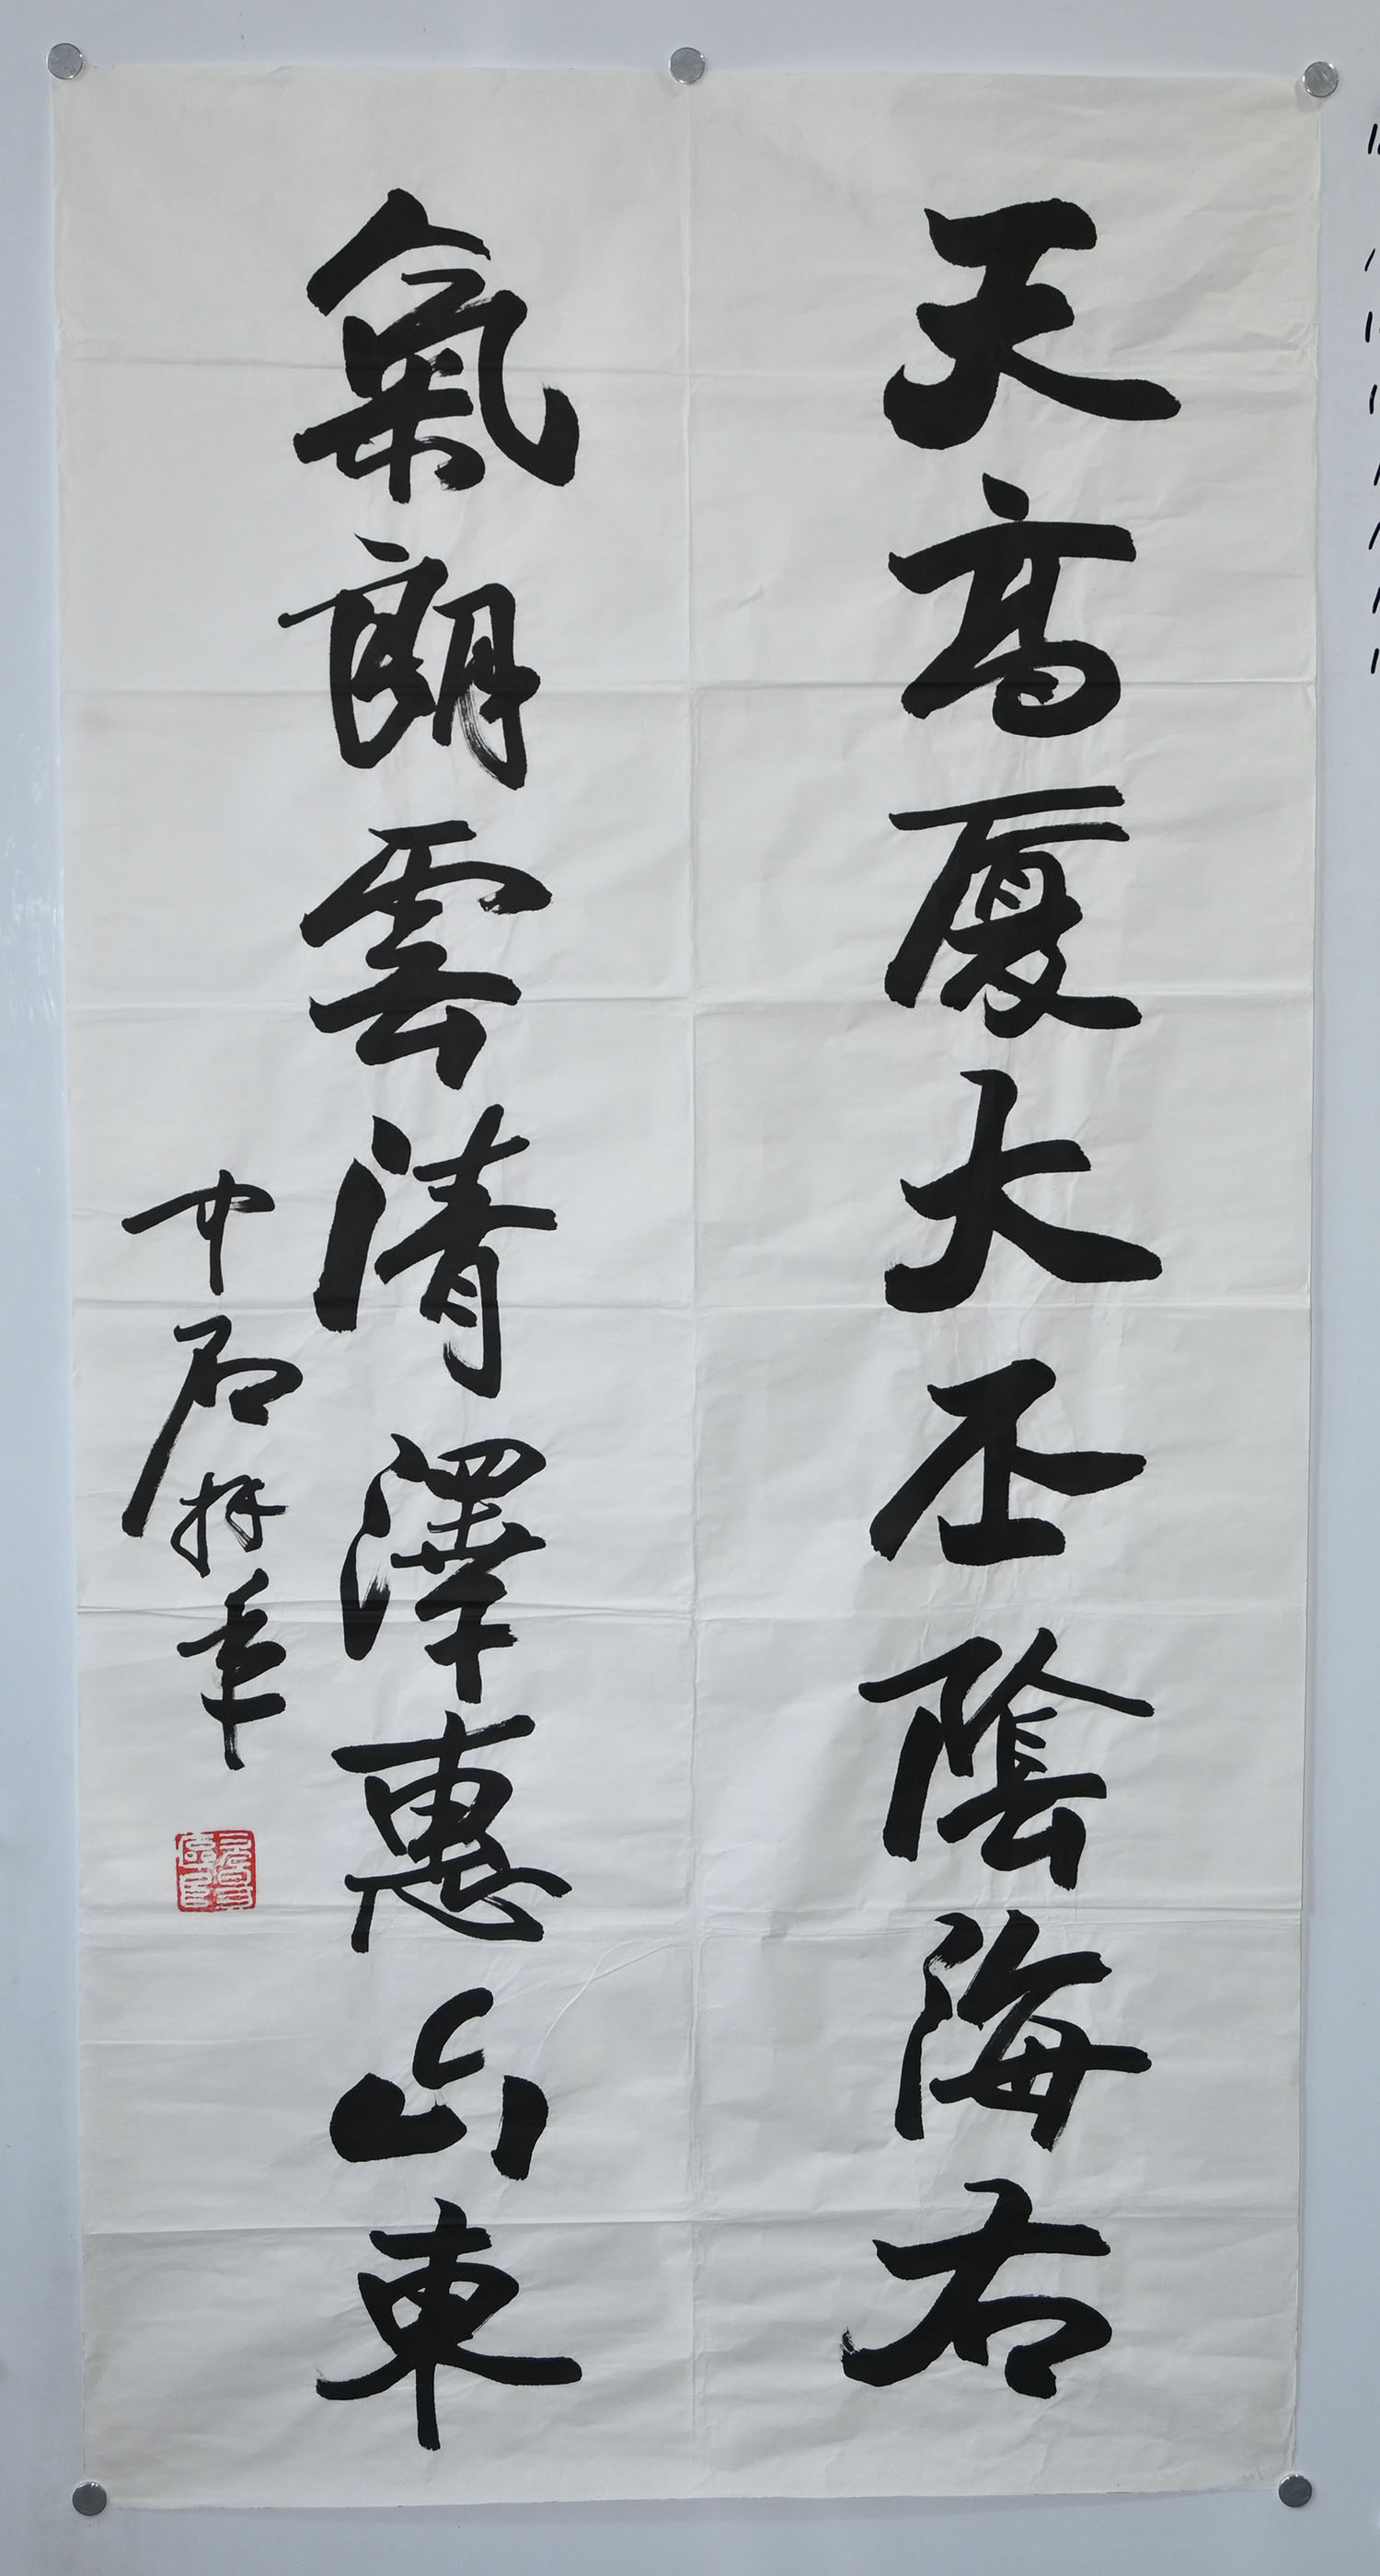 天高厦大丕陰海右
氣朗雲清澤惠山東
中石拜年